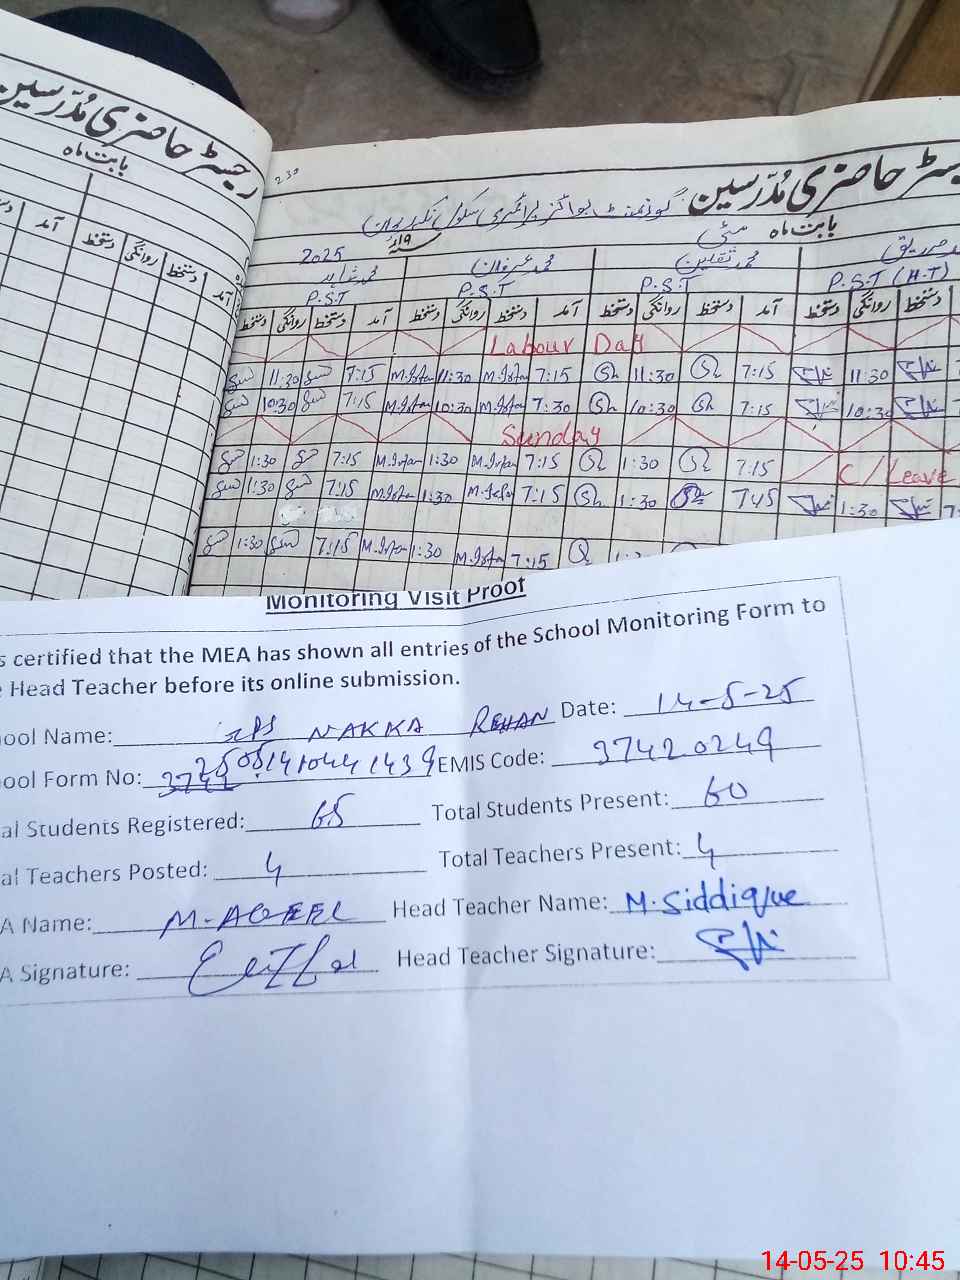 رجسٹر حاضری مُدّرسین
بابت ماہ
آمد دستخط روانگی دستخط آمد
230
رجسٹر حاضری مُدّرسین گورنمنٹ بوائز پرائمری سکول نکہ ریحان
بابت ماہ مئی 2025
محمد صدیق محمد ثقلین محمد عرفان محمد شاہد
P.S.T (H.T) P.S.T P.S.T P.S.T
دستخط روانگی دستخط آمد دستخط روانگی دستخط آمد دستخط روانگی دستخط آمد دستخط روانگی دستخط
Labour Day
11:30 7:15 M.Irfan 11:30 M.Irfan 7:15 Sh 11:30 Sh 7:15 11:30
10:30 7:15 M.Irfan 10:30 M.Irfan 7:30 Sh 10:30 Sh 7:15 10:30
Sunday
1:30 7:15 M.Irfan 1:30 M.Irfan 7:15 1:30 7:15 C/Leave
1:30 7:15 M.Irfan 1:30 M.Irfan 7:15 Sh 1:30 7:45 1:30
1:30 7:15 M.Irfan 1:30 M.Irfan 7:15
Monitoring Visit Proof
s certified that the MEA has shown all entries of the School Monitoring Form to
e Head Teacher before its online submission.
ool Name: GPS NAKKA REHAN Date: 14-5-25
ool Form No: 25051410441439 EMIS Code: 37420249
al Students Registered: 65 Total Students Present: 60
al Teachers Posted: 4 Total Teachers Present: 4
A Name: M. AQEEL Head Teacher Name: M. Siddique
A Signature: Head Teacher Signature:
14-05-25 10:45